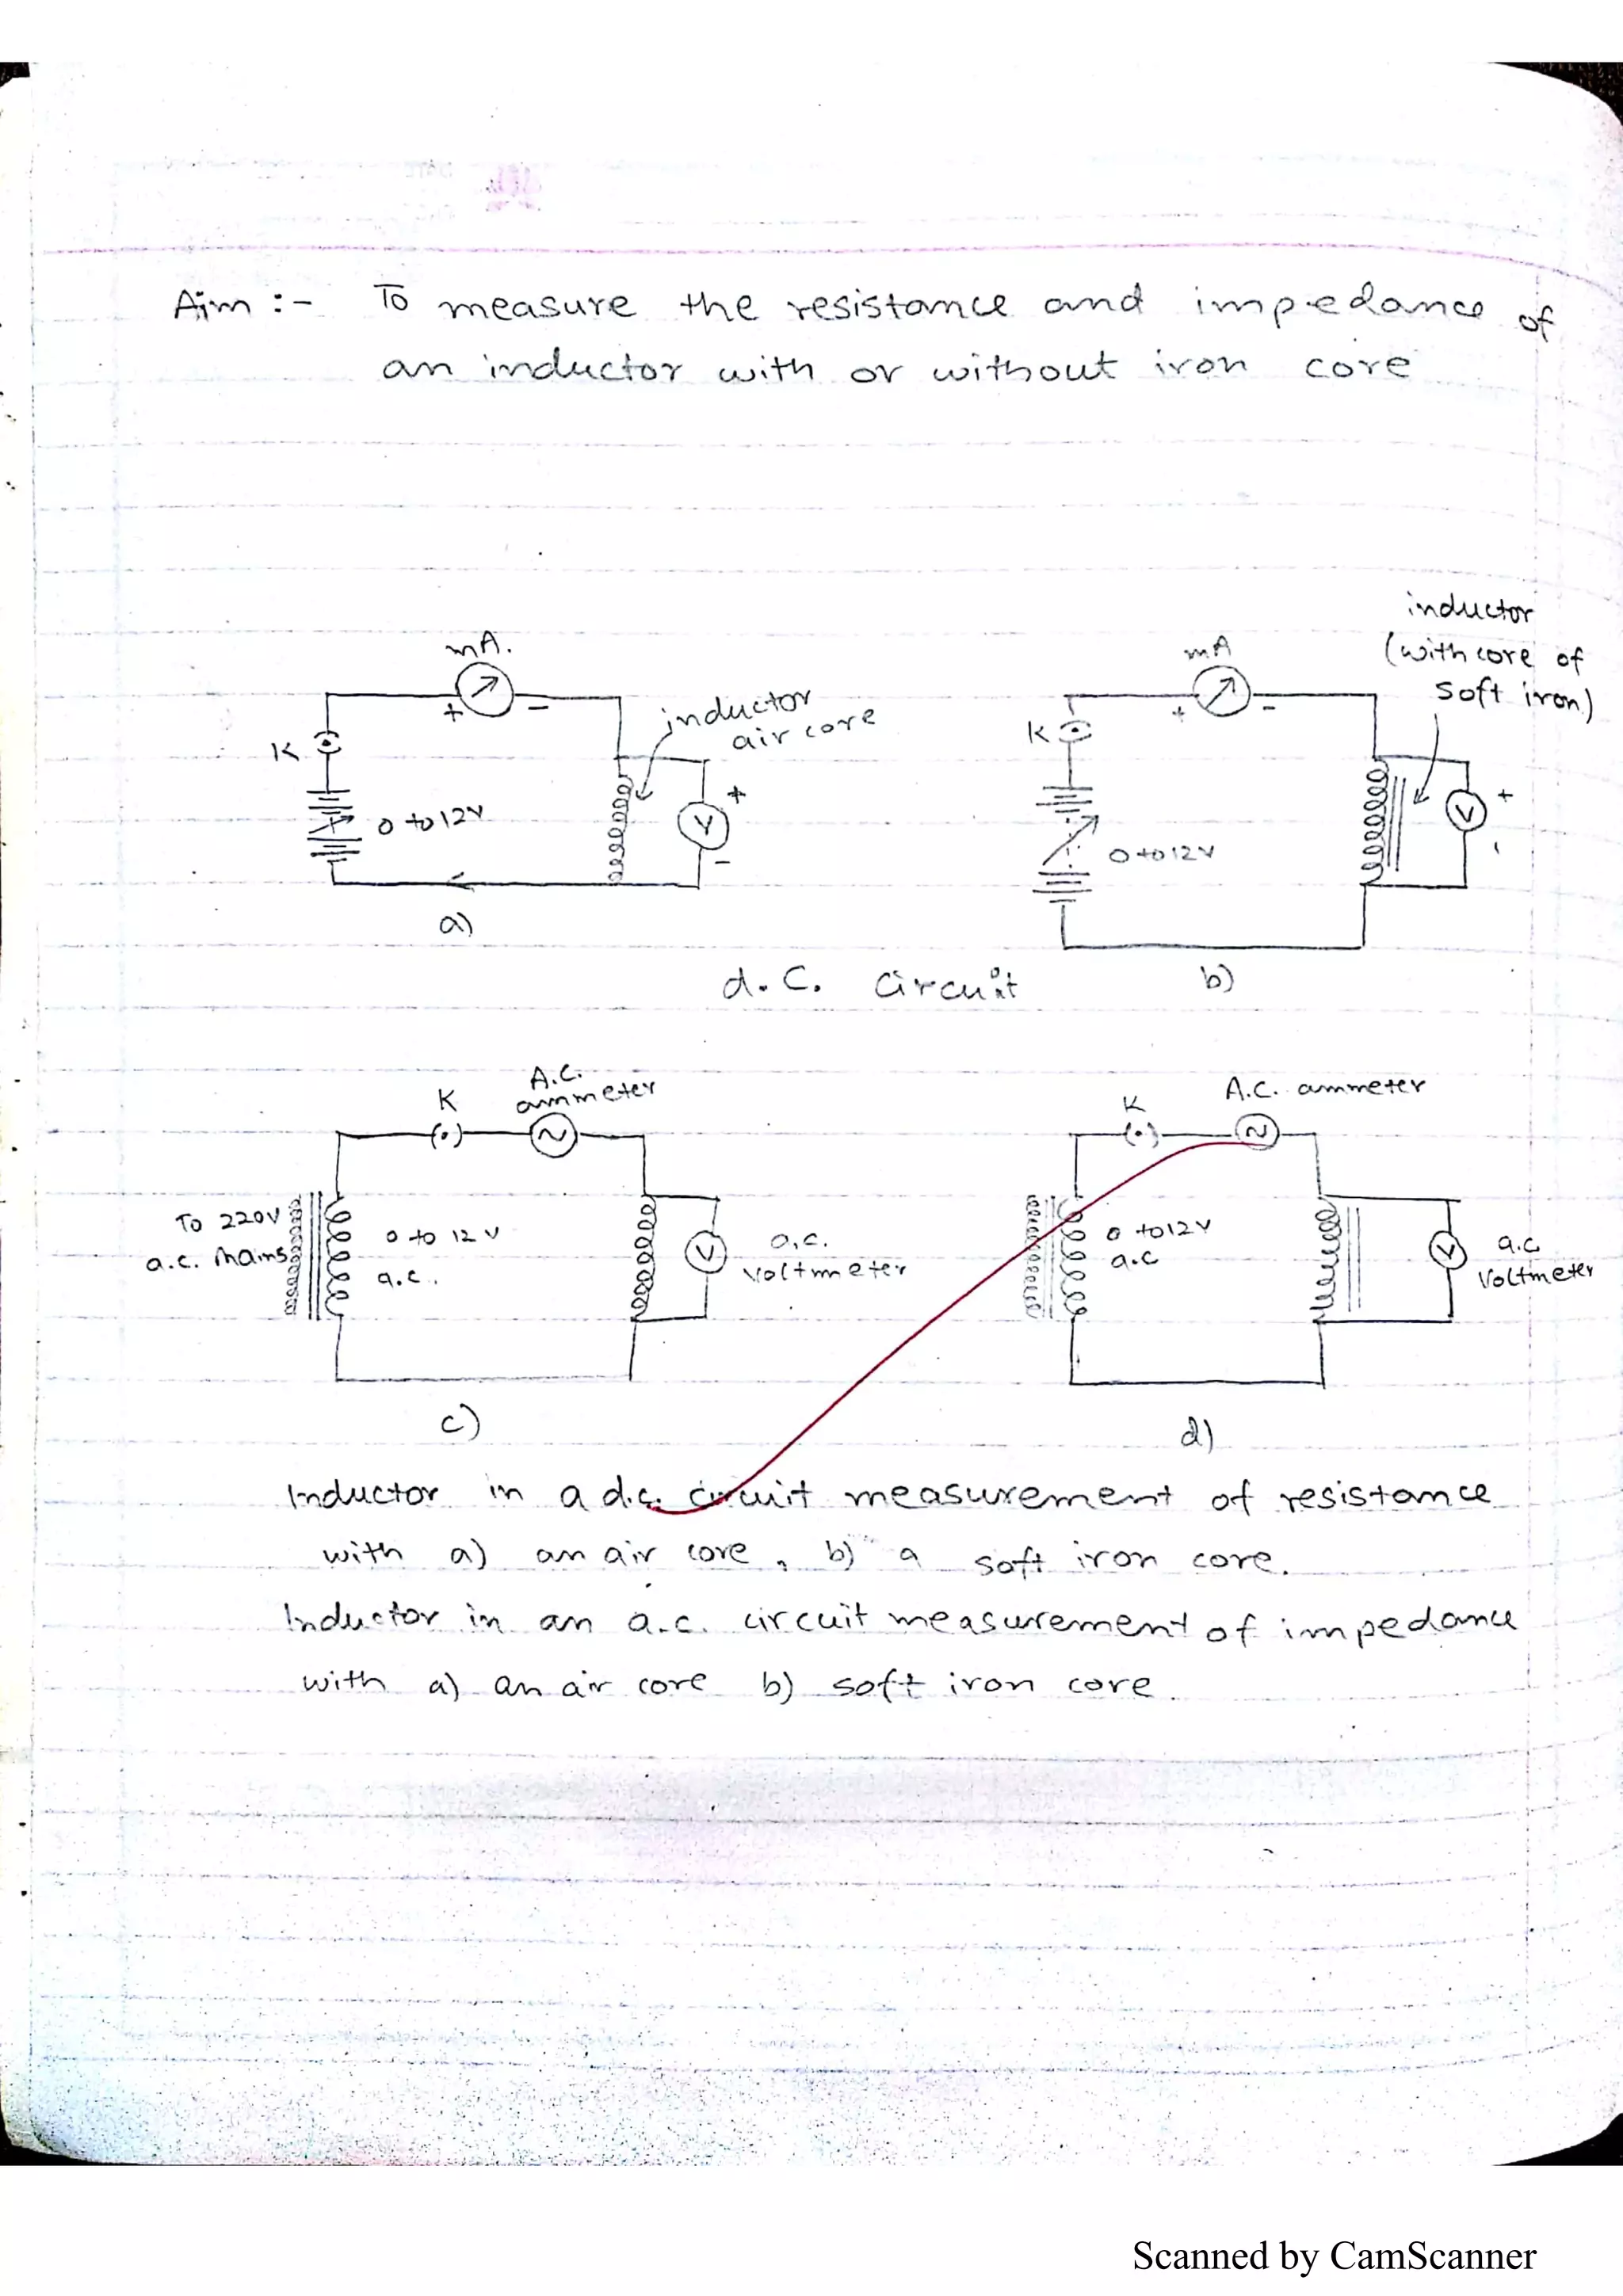 Aim :- To measure the resistance and impedance of
an inductor with or without iron core
mA.
+ -
K
0 to 12V
inductor
air core
V
+
-
a)
mA
+ -
K
0 to 12V
inductor
(with core of
soft iron)
V
+
b)
d.C. Circuit
K
A.C.
ammeter
To 220V
a.c. mains
0 to 12 V
a.c.
V
a.c.
voltmeter
c)
K
A.C. ammeter
0 to12V
a.c
V
a.c
Voltmeter
d)
Inductor in a d.c. circuit measurement of resistance
with a) an air core, b) a soft iron core.
Inductor in an a.c. circuit measurement of impedance
with a) an air core b) soft iron core.
Scanned by CamScanner